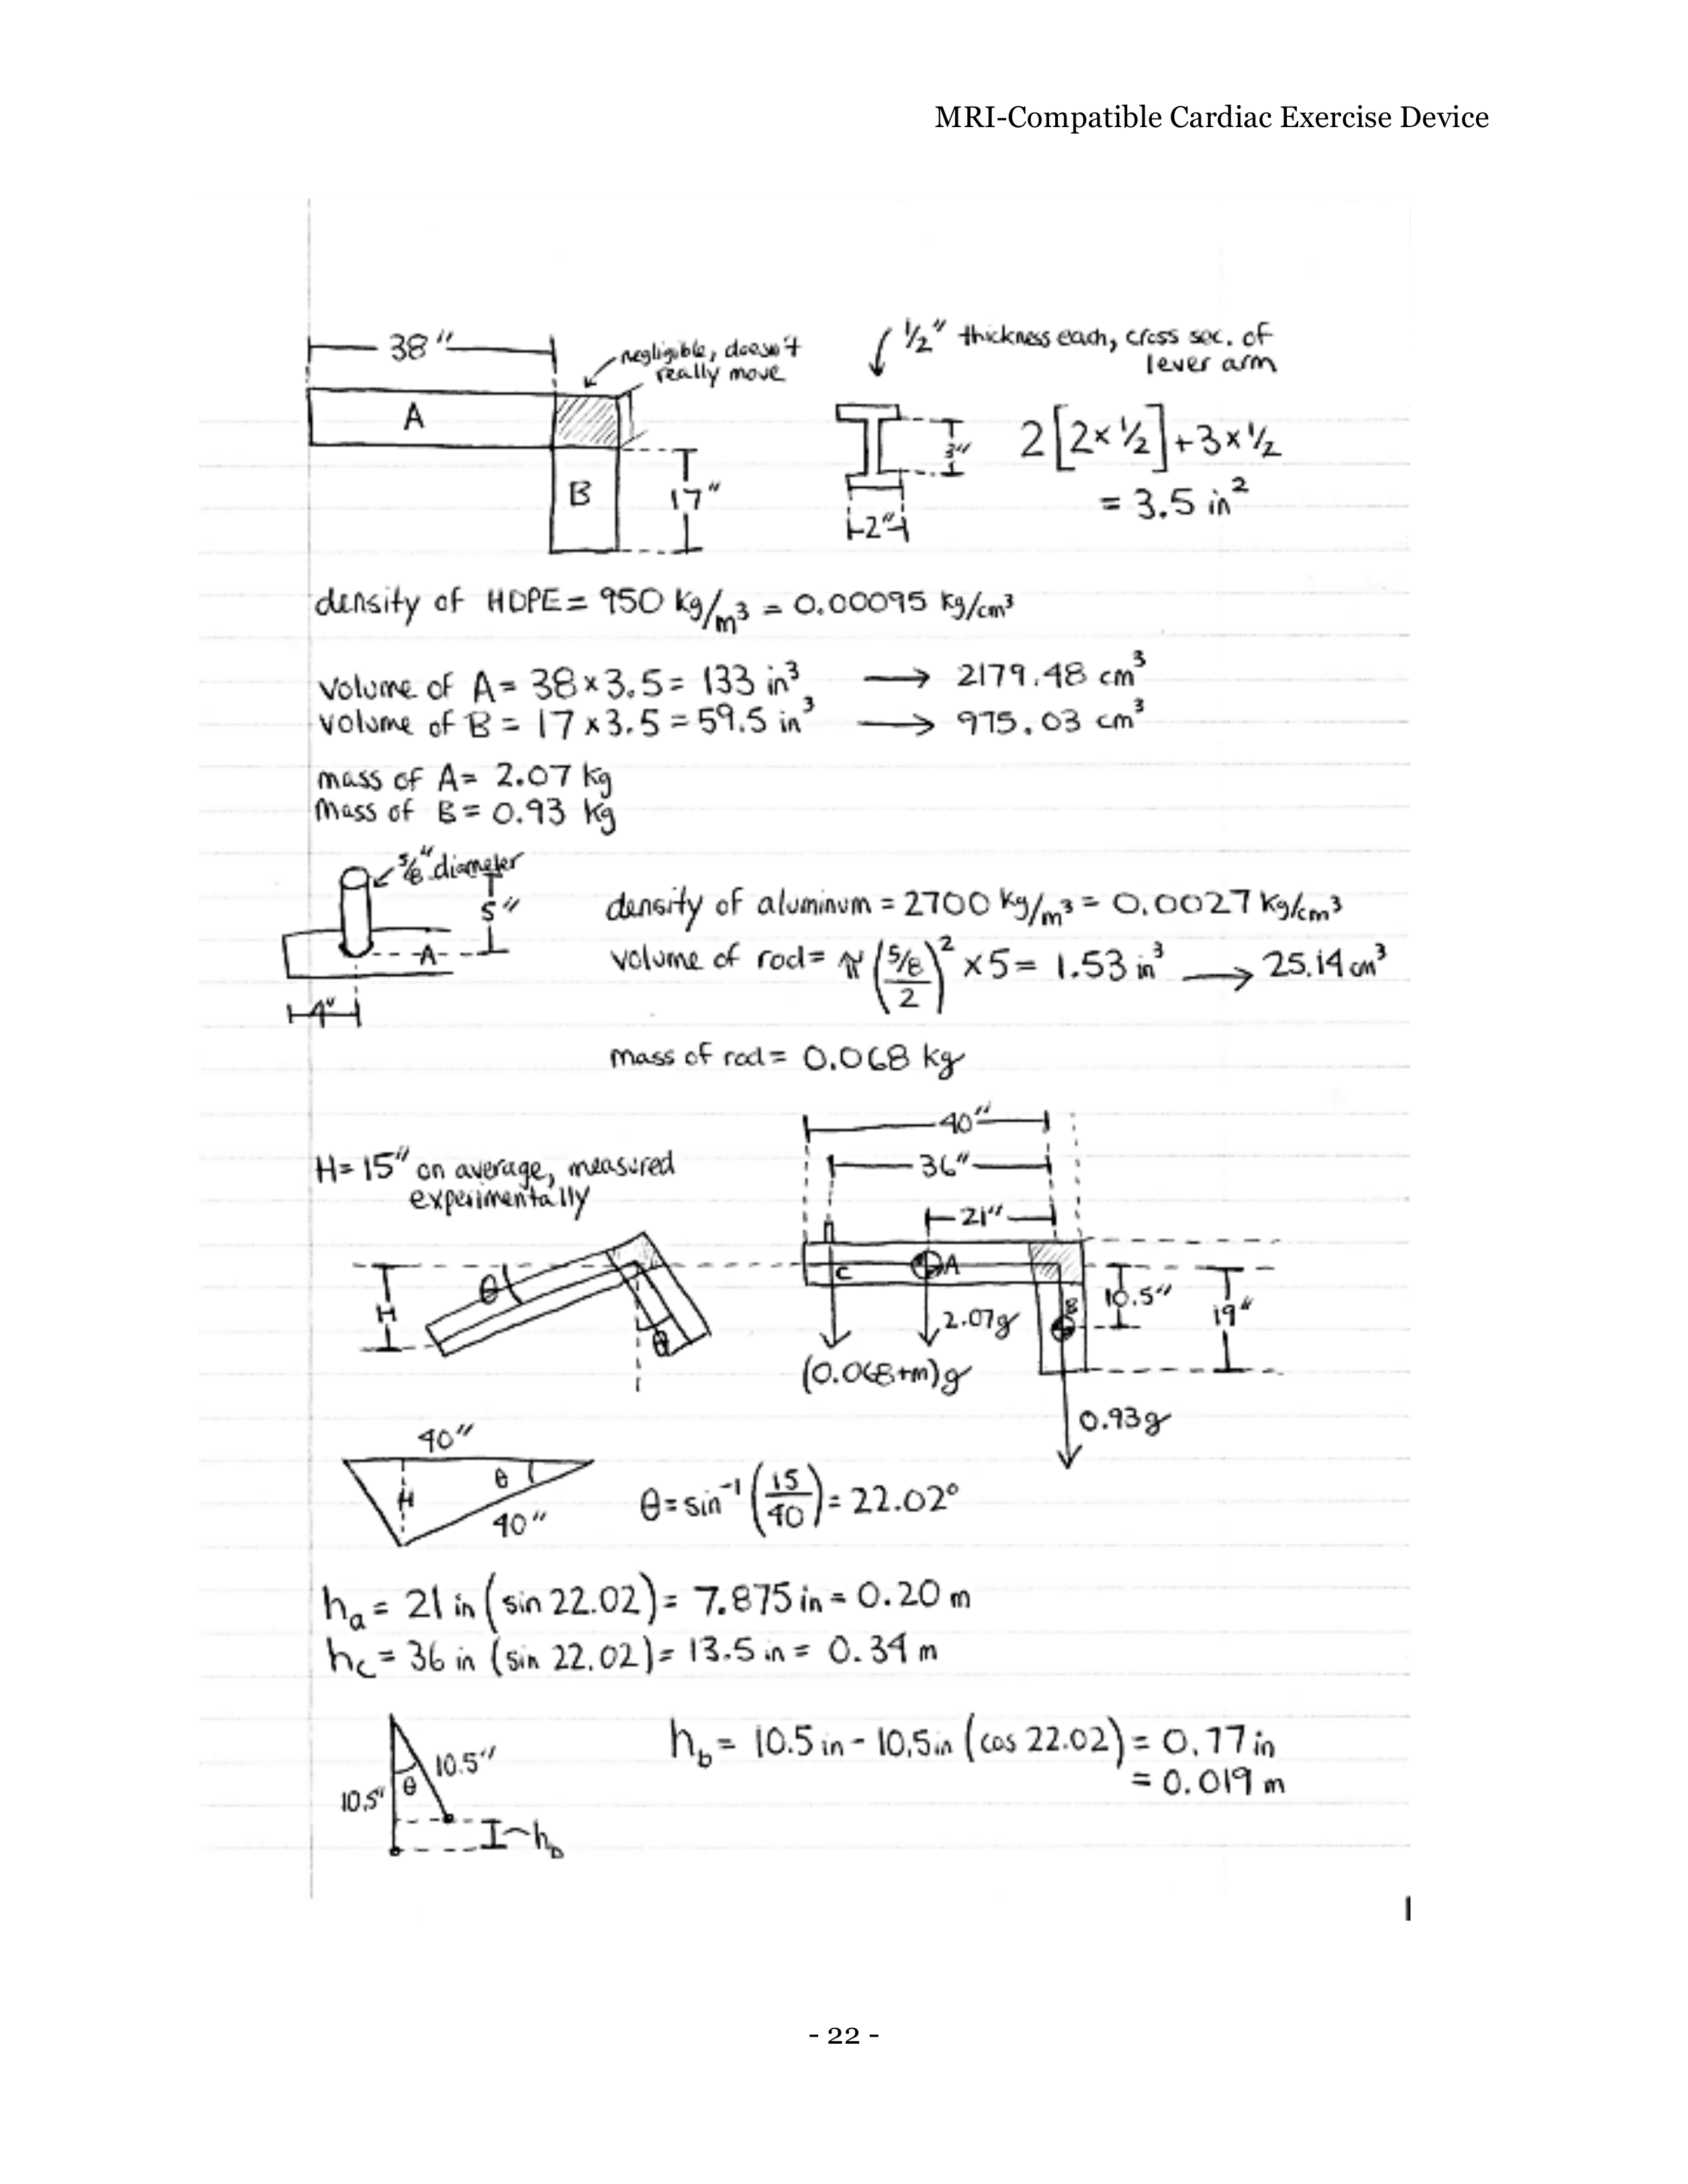 MRI-Compatible Cardiac Exercise Device
38"
negligible, doesn't
really move
1/2" thickness each, cross sec. of
lever arm
A
B
17"
3"
2"
2[2×1/2]+3×1/2
= 3.5 in²
density of HDPE = 950 kg/m³ = 0.00095 kg/cm³
volume of A = 38×3.5 = 133 in³ → 2179.48 cm³
volume of B = 17×3.5 = 59.5 in³ → 975.03 cm³
mass of A = 2.07 kg
mass of B = 0.93 kg
5/8" diameter
5"
A
4"
density of aluminum = 2700 kg/m³ = 0.0027 kg/cm³
volume of rod = π((5/8)/2)² ×5 = 1.53 in³ → 25.14 cm³
mass of rod = 0.068 kg
H = 15" on average, measured
experimentally
40"
36"
21"
C
A
B
10.5"
19"
2.07g
(0.068+m)g
0.93g
H
θ
θ
40"
θ
H
40"
θ = sin⁻¹(15/40) = 22.02°
hₐ = 21 in (sin 22.02) = 7.875 in = 0.20 m
h_c = 36 in (sin 22.02) = 13.5 in = 0.34 m
10.5"
θ
10.5"
h_b
h_b = 10.5 in - 10.5 in (cos 22.02) = 0.77 in
= 0.019 m
- 22 -